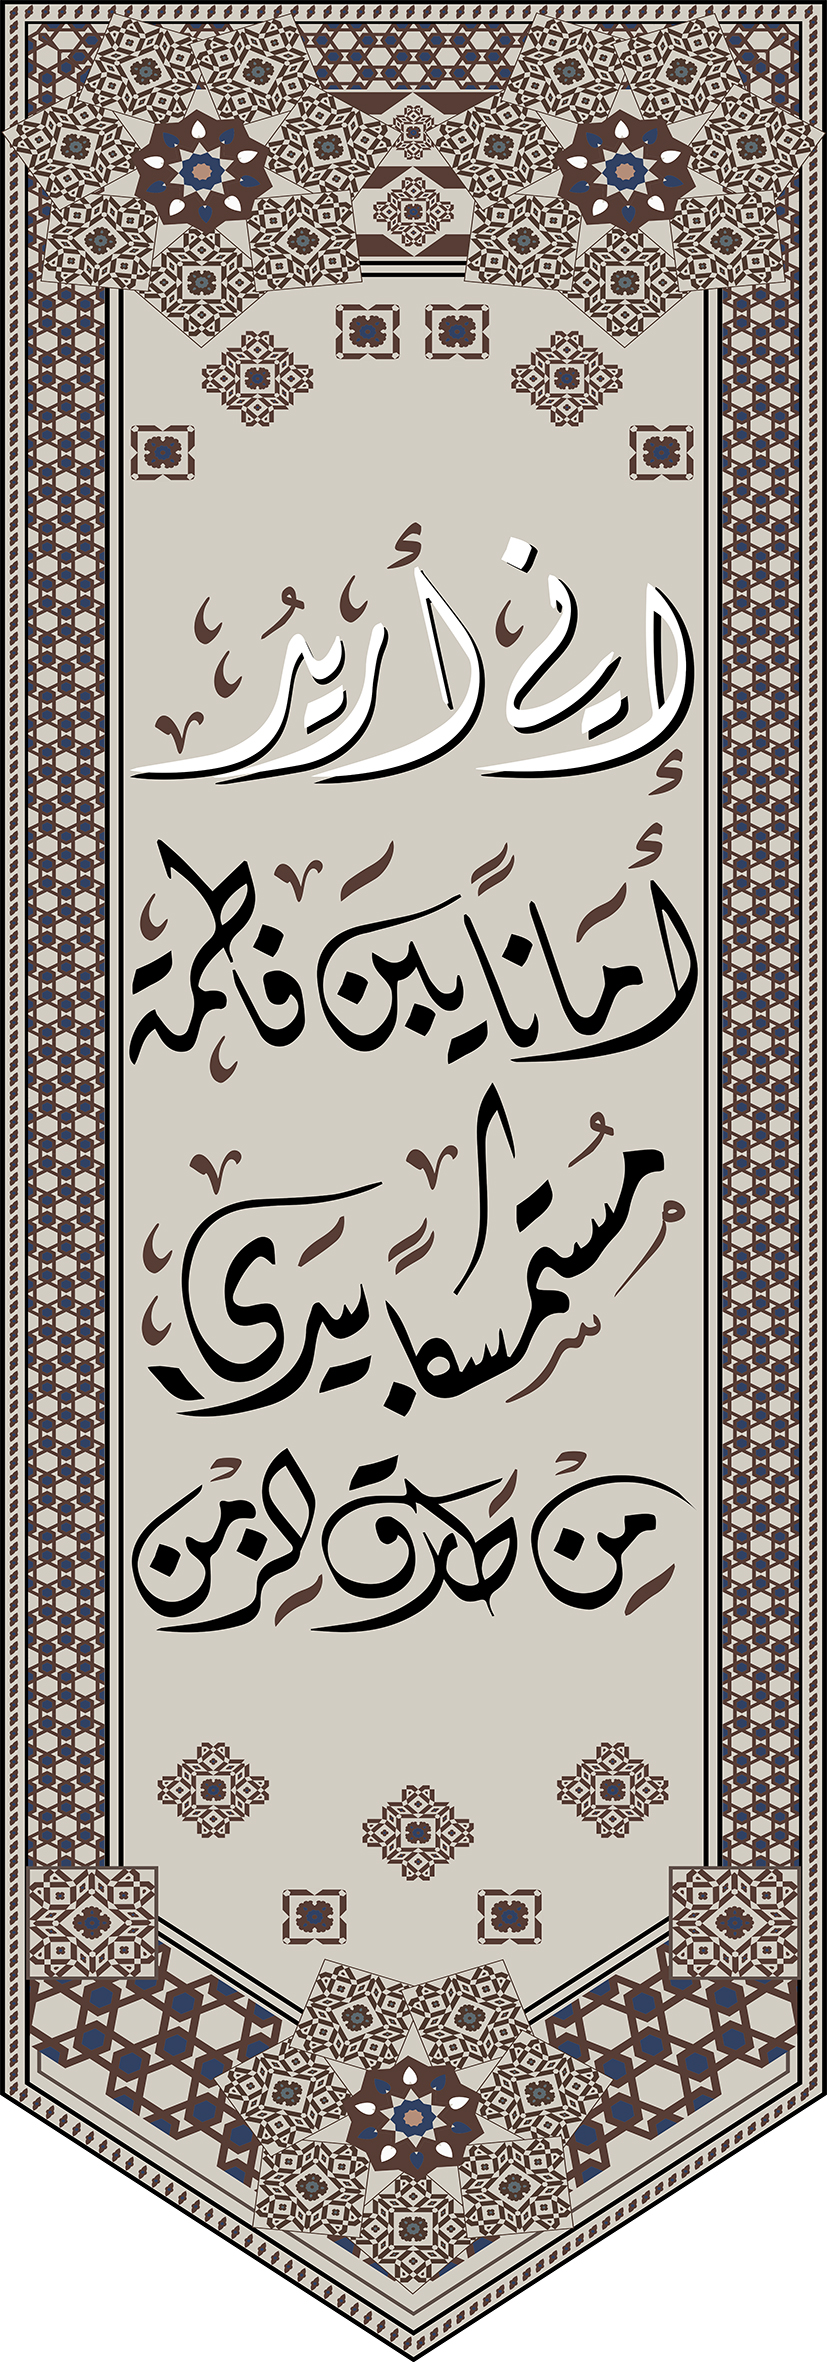 إني أريدُ
أَمَاناً يبنَ فاطمة
مُستمسكاً بيَدي
مِنْ طارق الزمن